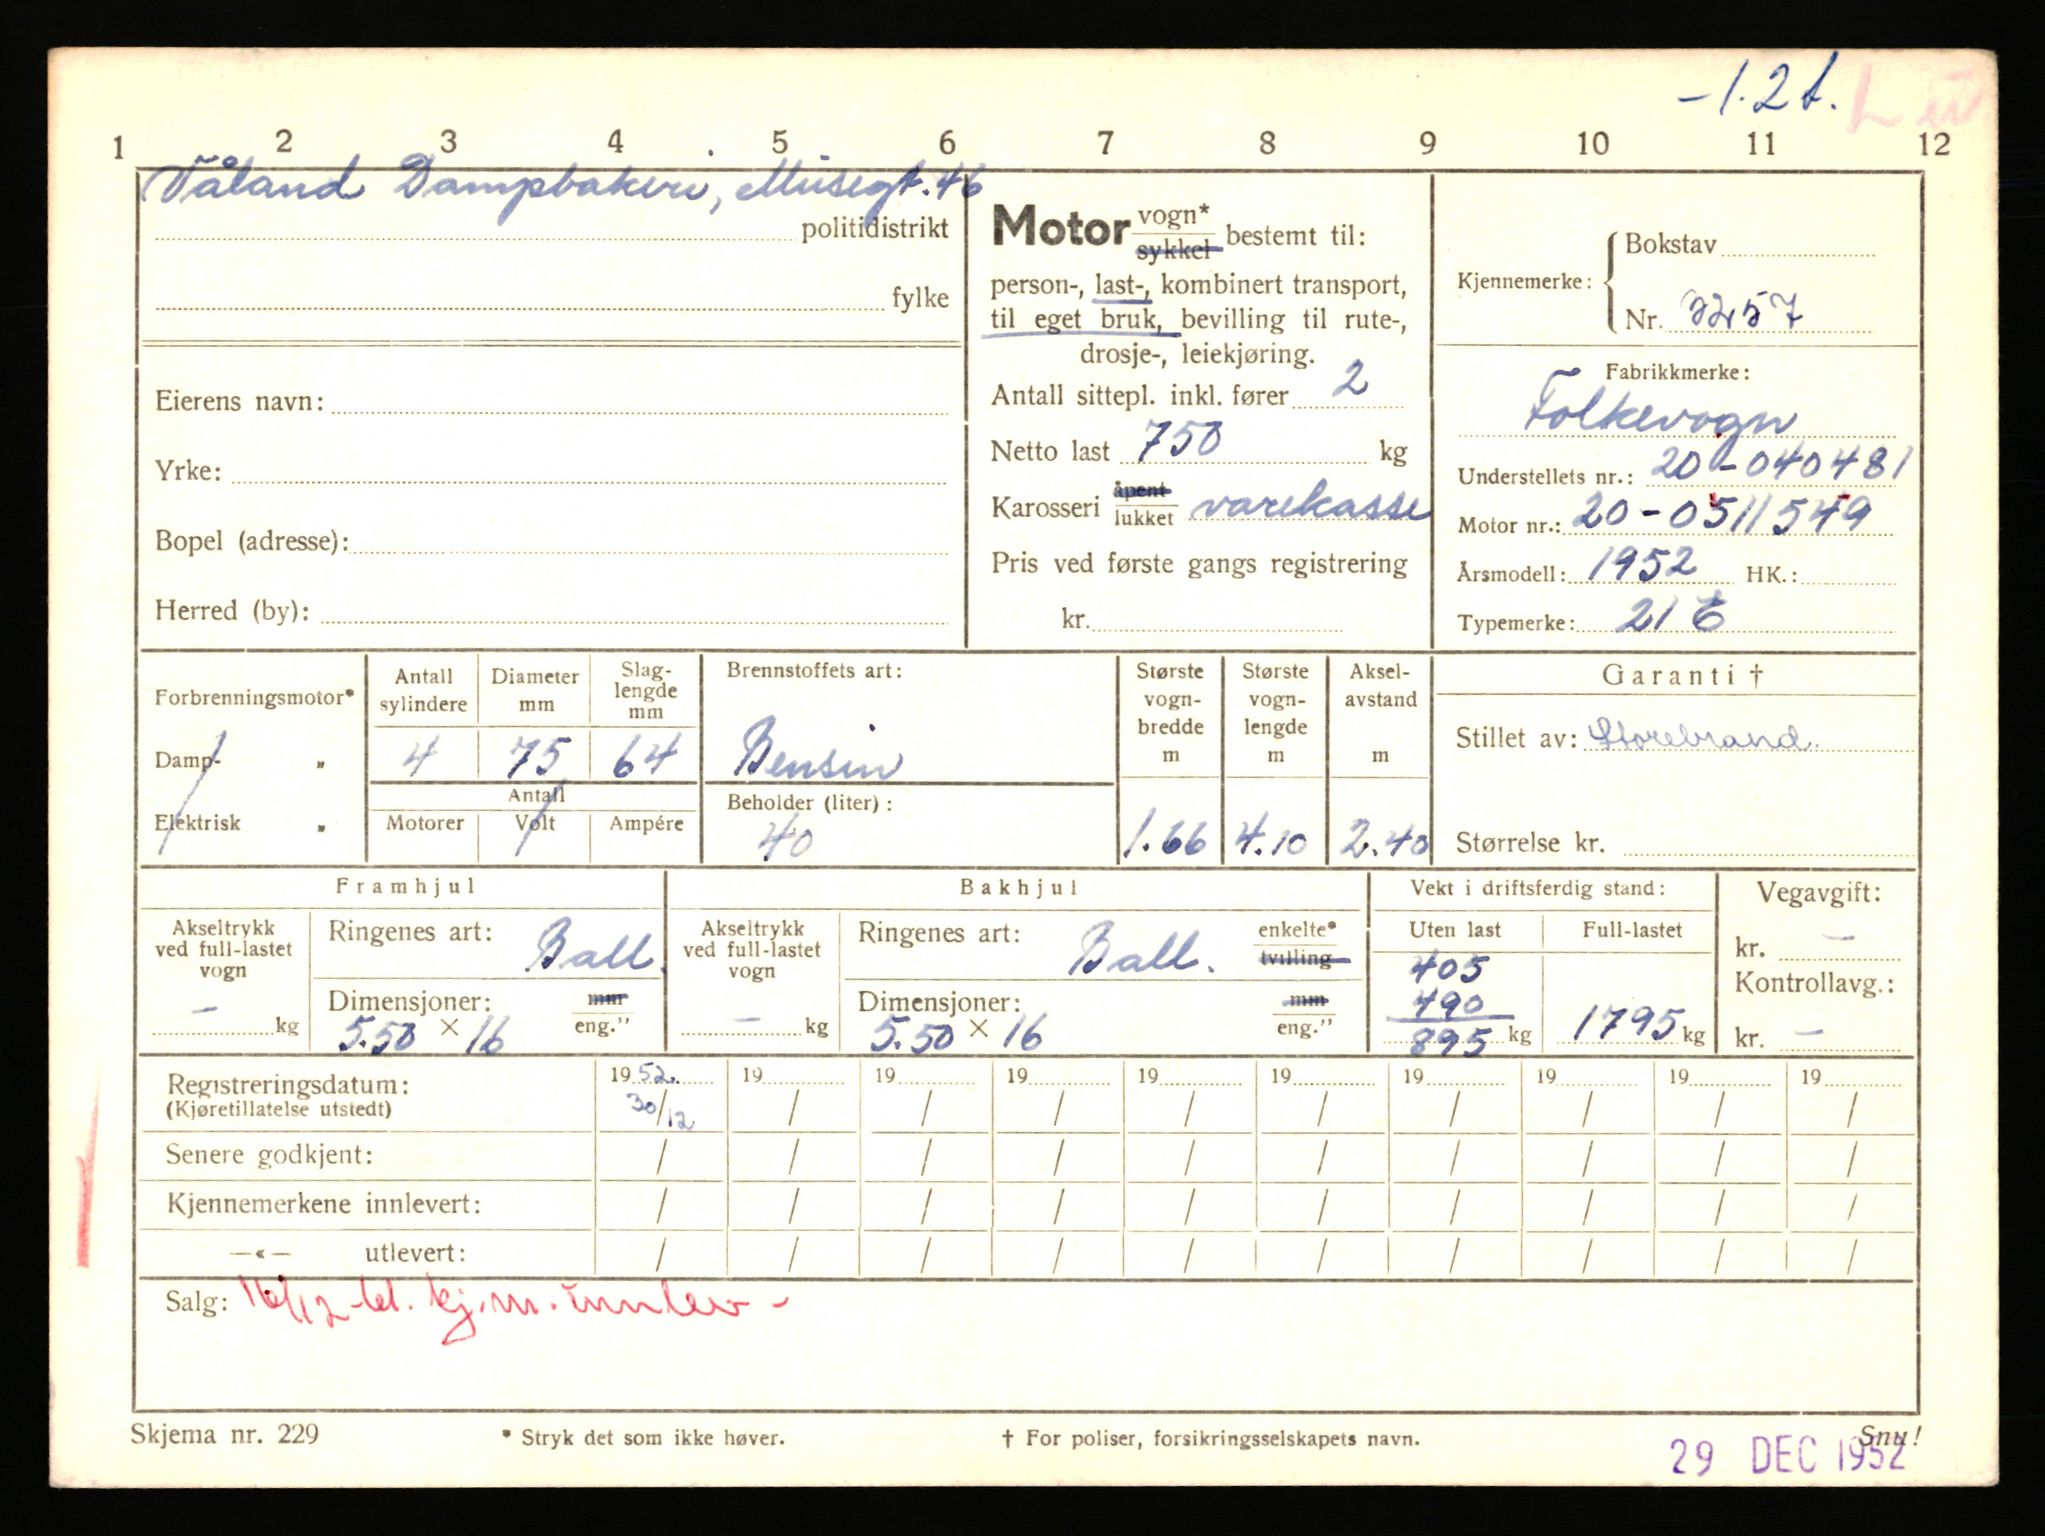 -1.2t.
1 2 3 4 5 6 7 8 9 10 11 12
Våland Dampbakeri, Musegt. 46
politidistrikt
fylke
Eierens navn:
Yrke:
Bopel (adresse):
Herred (by):
Motor vogn* sykkel bestemt til:
person-, last-, kombinert transport,
til eget bruk, bevilling til rute-,
drosje-, leiekjøring.
Antall sittepl. inkl. fører 2
Netto last 750 kg
Karosseri åpent lukket varekasse
Pris ved første gangs registrering
kr.
Kjennemerke: Bokstav
Nr. 3257
Fabrikkmerke:
Folkevogn
Understellets nr.: 20-040481
Motor nr.: 20-0511549
Årsmodell: 1952 HK.:
Typemerke: 21 E
Forbrenningsmotor*
Damp- "
Elektrisk "
Antall sylindere
4
Diameter mm
75
Slag-lengde mm
64
Antall
Motorer Volt Ampére
Brennstoffets art:
Bensin
Beholder (liter):
40
Største vogn-bredde m
1.66
Største vogn-lengde m
4.10
Aksel-avstand m
2.40
Garanti †
Stillet av: Storebrand
Størrelse kr.
Framhjul
Akseltrykk ved full-lastet vogn
- kg
Ringenes art: Ball.
Dimensjoner: mm
5.50 × 16 eng."
Bakhjul
Akseltrykk ved full-lastet vogn
- kg
Ringenes art: Ball. enkelte* tvilling
Dimensjoner: mm
5.50 × 16 eng."
Vekt i driftsferdig stand:
Uten last Full-lastet
405
490
895 kg 1795 kg
Vegavgift:
kr. -
Kontrollavg.:
kr. -
Registreringsdatum: 1952. 19 19 19 19 19 19 19 19 19
(Kjøretillatelse utstedt) 30/12 / / / / / / / / /
Senere godkjent: / / / / / / / / / /
Kjennemerkene innlevert: / / / / / / / / / /
—«— utlevert: / / / / / / / / / /
Salg: 16/12- kj.m. innlev -
Skjema nr. 229 * Stryk det som ikke høver. † For poliser, forsikringsselskapets navn. Snu!
29 DEC 1952